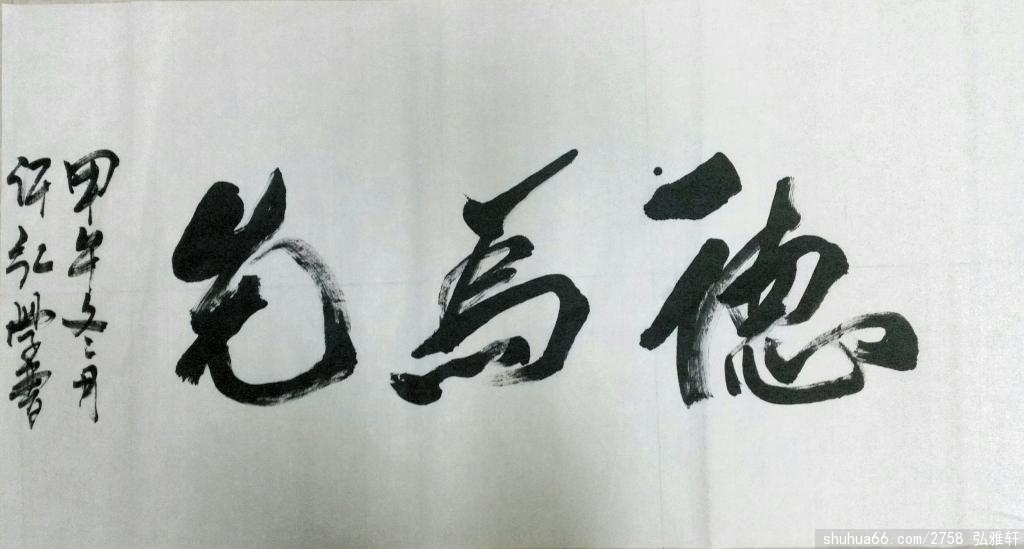 德為先
甲午冬月
許弘學書
shuhua66.com/2758 弘雅轩